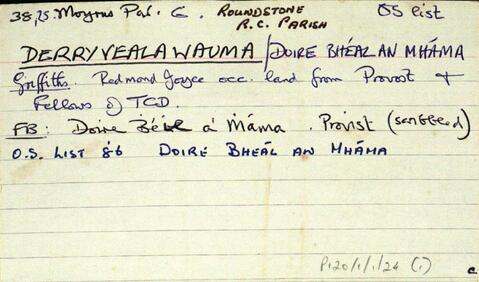 38,25. Moyrus Par. C. ROUNDSTONE R.C. PARISH OS list
DERRYVEALAWAUMA / DOIRE BHÉAL AN MHÁMA
Griffiths. Redmond Joyce occ. land from Provost +
Fellows of TCD.
FB: Doire Béil á Máma. Provist (scribbled)
O.S. LIST 86 DOIRE BHEÁL AN MHÁMA
P120/1/1/24 (1)
c